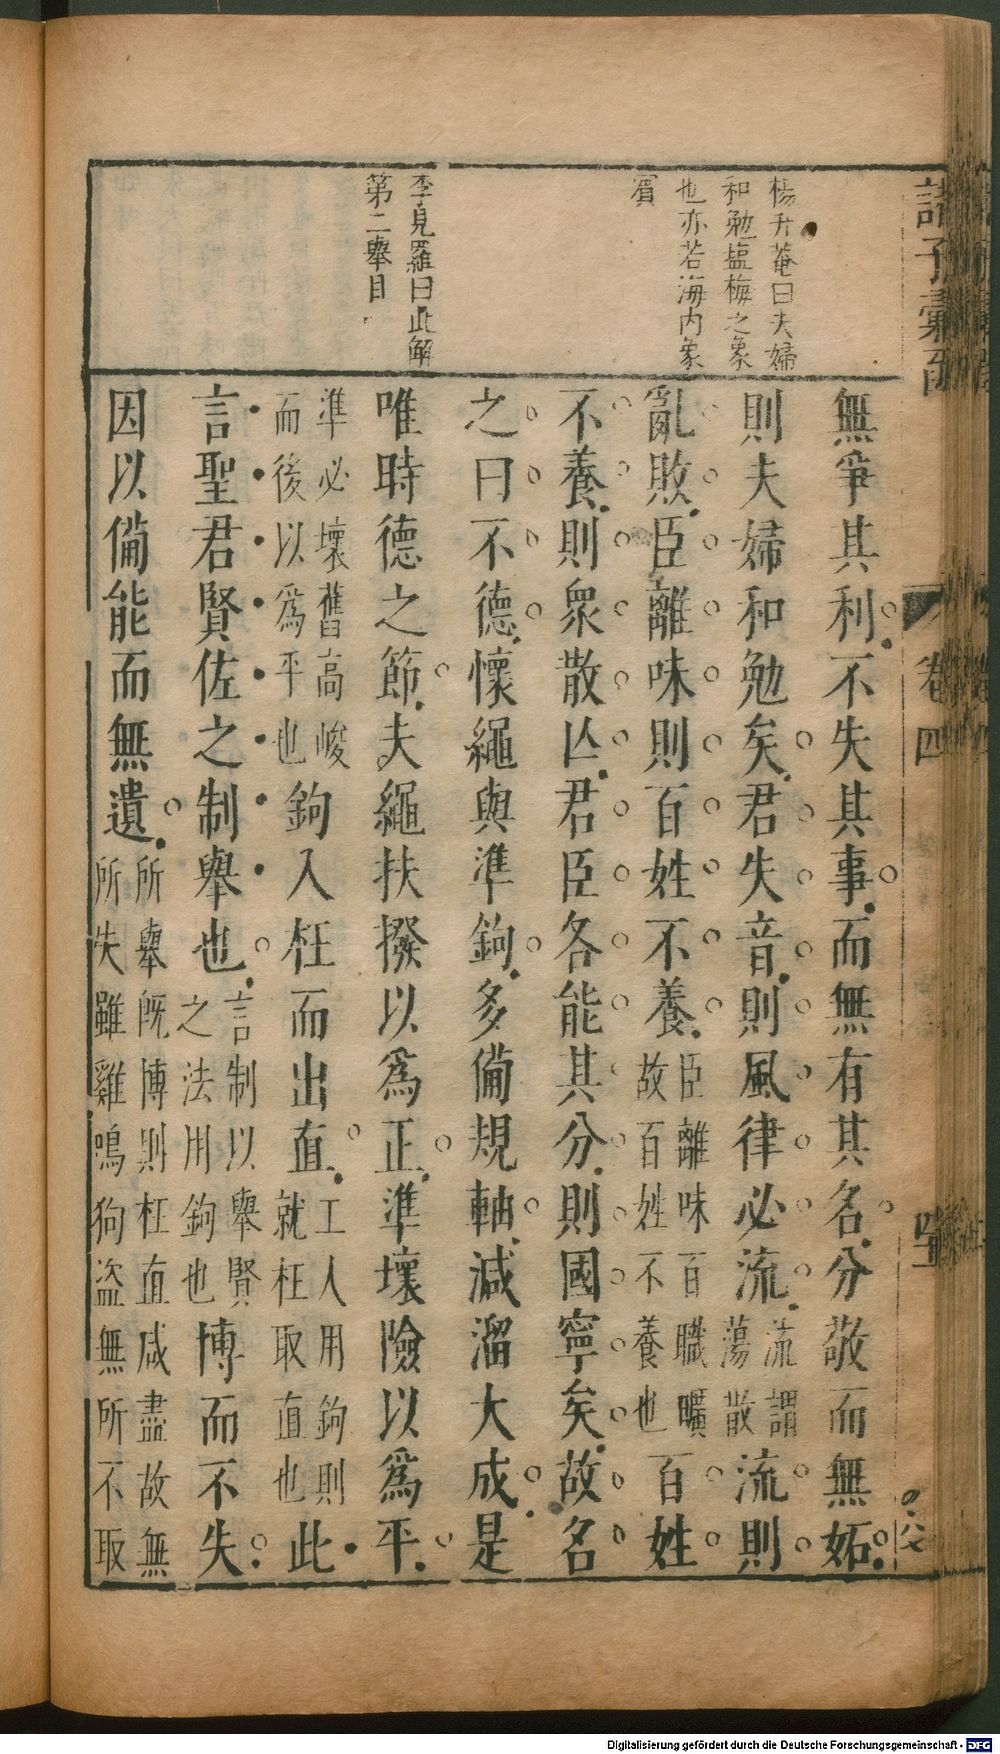 諸子彙函
卷四
楊升菴曰夫婦
和勉塩梅之象
也亦若海内象
賓
李見羅曰此解
第二舉目
無爭其利不失其事而無有其名分敬而無妬
則夫婦和勉矣君失音則風律必流流謂蕩散流則
亂敗臣離味則百姓不養臣離味百職曠故百姓不養也百姓
不養則衆散亾君臣各能其分則國寧矣故名
之曰不德懷繩與準鉤多備規軸減溜大成是
唯時德之節夫繩扶撥以爲正準壞險以爲平
準必壞舊高峻而後以爲平也鉤入枉而出直工人用鉤則就枉取直也此
言聖君賢佐之制舉也言制以舉賢之法用鉤也博而不失
因以備能而無遺所舉旣博則枉直咸盡故無所失雖雞鳴狗盗無所不取
Digitalisierung gefördert durch die Deutsche Forschungsgemeinschaft - DFG